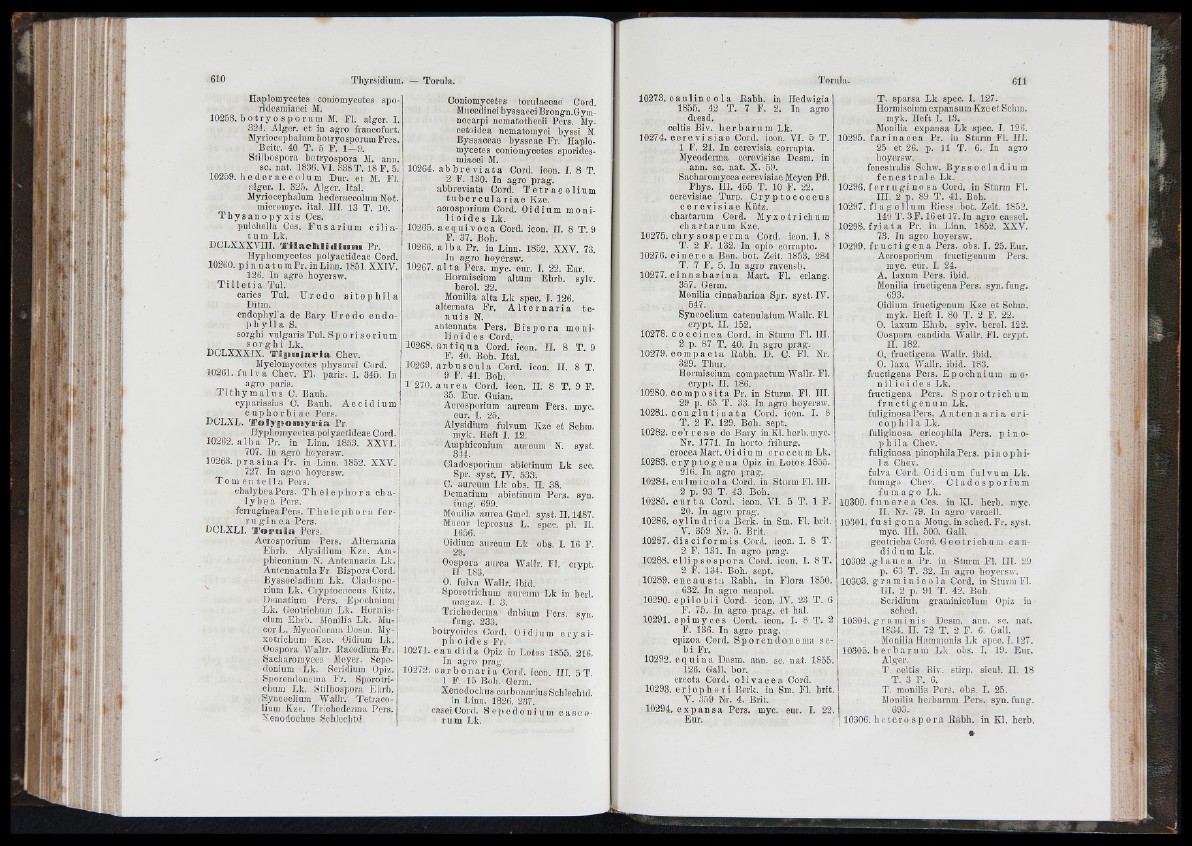 610 Thyrsidium. — Torula.
Haplomycetes coniomycetes spo-
ridesmiacei M.
10258. botryosporum M. Fl. alger. I.
324. Alger. et in agro francofurt.
Myriocephalum botryosporum Fres.
Beitr. 40 T. 5 F. 1—9.
Stilbospora botryospora M. ann.
sc. nat. 1836. VI. 338 T. 18 F. 5.
10259. hederaecolum Dur. et M. Fl.
alger. I. 325. Alger. Ital.
Myriocephalum hederaecolum Not.
micromyc. ital. III. 13 T. 10.
Thysanopyxis Ces.
pulchella Ces. Fusarium cilia-
tum Lk.
DCLXXXVIII. Tilachlidium Pr.
Hyphomycetes polyactideae Cord.
10260. pinnatum Pr. in Linn. 1851. XXIV.
126. In agro hoyersw.
Tilletia Tul.
caries Tul. Uredo sitophila
Ditm.
endophylla de Bary Uredo endo-
phylla S.
sorghi vulgaris Tul. Sporisorium
sorghi Lk.
DCLXXXIX. Tipularia Chev.
Myelomycetes physarei Cord.
10261. fulva Chev. Fl. paris. I. 345. In
agro paris.
Tithymalus C. Bauh.
cyparissius C. Bauh. Aecidium
euphorbiae Pers.
DCLXL. Tolypomyria Pr.
Hyphomycetes polyactideae Cord.
10262. alba Pr. in Linn. 1853. XXVI.
707. In agro hoyersw.
10263. prasina Pr. in Linn. 1852. XXV.
727. In agro hoyersw.
Tomentella Pers.
chalybea Pers. Thelephora cha-
lybea Pers.
ferruginea Pers. Thelephora fer-
ruginea Pers.
DCLXLI. Torula Pers.
Acrosporium Pers. Alternaria
Ehrb. Alysidium Kze. Am-
phiconium N. Antennaria Lk.
Antennatula Fr. Bispora Cord.
Byssocladium Lk. Cladospo-
rium Lk. Cryptococcus Kütz.
Dematium Pers. Epochnium
Lk. Geotrichum Lk. Hormis-
cium Ehrb. Monilia Lk. Mu-
cor L. Mycoderma Desm. My-
xotrichum Kze. Oidium Lk.
Oospora Wallr. Racodium Fr.
Sacharomyces Meyer. Sepe-
donium Lk. Seridium Opiz.
Sporendonema Fr. Sporotri-
chum Lk. Stilbospora Ehrb.
Syncoelium Wallr. Tetraco-
lium Kze. Trichoderma Pers.
Xenodochus Schlechtd.
Coniomycetes torulaceae Cord.
Mucedinei byssacei Brongn. Gym-
nocarpi nematothecii Pers. My-
cetoidea nematomyci byssi N.
Byssaceae bysseae Fr. Haplo-
mycetes coniomycetes sporides-
miacei M.
10264. abbreviata Cord. icon. I. 8 T.
2 F. 130. In agro prag.
abbreviata Cord. Tetracolium
tuberculariae Kze.
acrosporium Cord. Oidium moni-
lioides Lk.
10265. aequivoca Cord. icon. II. 8 T. 9
F. 37. Boh.
10266. alba Pr. in Linn. 1852. XXV. 73.
In agro hoyersw.
10267. alta Pers. myc. eur. I. 22. Eur.
Hormiscium altum Ehrb. sylv.
berol. 22.
Monilia alta Lk spec. I. 126.
alternata Fr. Alternaria te-
nuis N.
antennata Pers. Bispora moni-
lioides Cord.
10268. antiqua Cord. icon. II. 8 T. 9
F. 40. Boh. Ital.
10269. arbuscula Cord. icon. II. 8 T.
9 F. 41. Boh.
10270. aurea Cord. icon. II. 8 T. 9 F.
35. Eur. Guian.
Acrosporium aureum Pers. myc.
eur. I. 25.
Alysidium fulvum Kze et Schm.
myk. Heft I. 12.
Amphiconium aureum N. syst.
344.
Cladosporium abietinum Lk sec.
Spr. syst. IV. 533.
C. aureum Lk obs. II. 38.
Dematium abietinum Pers. syn.
fung. 699.
Monilia aurea Gmel. syst. II. 1487.
Mucor leprosus L. spec. pl. II.
1656.
Oidium aureum Lk obs. I. 16 F.
29.
Oospora aurea Wallr. Fl. crypt.
II. 183.
O. fulva Wallr. ibid.
Sporotrichum aureum Lk in berl.
magaz. I. 3.
Trichoderma dubium Pers. syn.
fung. 233.
botryoides Cord. Oidium erysi-
phoides Fr.
10271. candida Opiz in Lotos 1855. 216.
In agro prag.
10272. carbonaria Cord. icon. III. 5 T.
1 F. 15 Boh. Germ.
Xenodochus carbonarius Schlechtd.
in Linn. 1826. 237.
casei Cord. Sepedonium caseo-
rum Lk.
Torula. 611
10273. caulincola Rabh. in Hedwigia
1855. 42 T. 7 F. 2. In agro
dresd.
celtis Biv. herbarum Lk.
10274. cerevisiae Cord. icon. VI. 5 T.
1 F. 21. In cerevisia corrupta.
Mycoderma cerevisiae Desm. in
ann. sc. nat. X. 59.
Sacharomyces cerevisiae Meyen Pfl.
Phys. III. 455 T. 10 F. 22.
cerevisiae Turp. Cryptococcus
cerevisiae Kütz.
chartarum Cord. Myxotrichum
chartarum Kze.
10275. chrysosperma Cord. icon. I. 8
T. 2 F. 132. In opio corrupto.
10276. cinerea Bon. bot. Zeit. 1853. 284
T. 7 F. 5. In agro ravensb.
10277. cinnabarina Mart. Fl. erlang.
357. Germ.
Monilia cinnabarina Spr. syst. IV.
547.
Syncoelium catenulatum Wallr. Fl.
crypt. II. 152.
10278. coccinea Cord. in Sturm Fl. III.
2 p. 87 T. 40. In agro prag.
10279. compacta Rabh. D. C. Fl. Nr.
329. Thur.
Hormiscium compactum Wallr. Fl.
crypt. II. 186.
10280. composita Pr. in Sturm. Fl. III.
29 p. 65 T. 33. In agro hoyersw.
10281. conglutinata Cord. icon. I. 8
T. 2 F. 129. Boh. sept.
10282. coerese de Bary in Kl. herb. myc.
Nr. 1771. In horto friburg.
crocea Mart. Oidium croceum Lk.
10283. cryptogena Opiz in Lotos 1855.
216. In agro prag.
10284. culmicola Cord. in Sturm Fl. III.
2 p. 93 T. 43. Boh.
10285. curta Cord. icon. VI. 5 T. 1 F.
20. In agro prag.
10286. cylindrica Berk. in Sm. Fl. brit.
V. 359 Nr. 5. Brit.
10287. disciformis Cord. icon. I. 8 T.
2 F. 131. In agro prag.
10288. ellipsospora Cord. icon. I. 8 T.
2 F. 134. Boh. sept.
10289. encausta Rabh. in Flora 1850.
632. In agro neapol.
10290. epilobii Cord. icon. IV. 23 T. 6
F. 75. In agro prag. et hal.
10291. epimyces Cord. icon. I. 8 T. 2
F. 136. In agro prag.
epizoa Cord. Sporendonema se-
bi Fr.
10292. equina Desm. ann. sc. nat. 1855.
126. Gall. bor.
erecta Cord. olivacea Cord.
10293. eriophori Berk. in Sm. Fl. brit.
V. 359 Nr. 4. Brit.
10294. expansa Pers. myc. eur. I. 22.
Eur.
T. sparsa Lk spec. I. 127.
Hormiscium expansum Kze et Schm.
myk. Heft I. 13.
Monilia expansa Lk spec. I. 126.
10295. farinacea Pr. in Sturm Fl. III.
25 et 26. p. 11 T. 6. In agro
hoyersw.
fenestralis Schw. Byssocladium
fenestrale Lk.
10296. ferruginosa Cord. in Sturm Fl.
III. 2 p. 89 T. 41. Boh.
10297. flagellum Riess bot. Zeit. 1852.
149 T. 3 F. 16 et 17. In agro cassel.
10298. friata Pr. in Linn. 1852. XXV.
73. In agro hoyersw.
10299. fructigena Pers. obs. I. 25. Eur.
Acrosporium fructigenum Pers.
myc. eur. I. 24.
A. laxum Pers. ibid.
Monilia fructigena Pers. syn. fung.
693.
Oidium fructigenum Kze et Schm.
myk. Heft I. 80 T. 2 F. 22.
O. laxum Ehrb. sylv. berol. 122.
Oospora candida Wallr. Fl. crypt.
II. 182.
O. fructigena Wallr. ibid.
O. laxa Wallr. ibid. 183.
fructigena Pers. Epochnium mo-
nilioides Lk.
fructigena Pers. Sporotrichum
fructigenum Lk.
fuliginosa Pers. Antennaria eri-
cophila Lk.
fuliginosa ericophila Pers. pino-
phila Chev.
fuliginosa pinophila Pers. pinophi-
la Chev.
fulva Cord. Oidium fulvum Lk.
fumago Chev. Cladosporium
fumago Lk.
10300. funerea Ces. in Kl. herb. myc.
II. Nr. 79. In agro vercell.
10301. fusigona Moug. in sched. Fr. syst.
myc. III. 500. Gall.
geotricha Cord. Geotrichum can-
didum Lk.
10302. glauca Pr. in Sturm Fl. III. 29
p. 63 T. 32. In agro hoyersw.
10303. graminicola Cord. in Sturm Fl.
III. 2 p. 91 T. 42. Boh.
Seridium graminicolum Opiz in
sched.
10304. graminis Desm. ann. sc. nat.
1834. II. 72 T. 2 F. 6. Gall.
Monilia Hammonis Lk spec. I. 127.
10305. herbarum Lk obs. I. 19. Eur.
Alger.
T. celtis Biv. stirp. sicul. II. 18
T. 3 F. 6.
T. monilia Pers. obs. I. 25.
Monilia herbarum Pers. syn. fung.
693.
10306. heterospora Rabh. in Kl. herb.
*